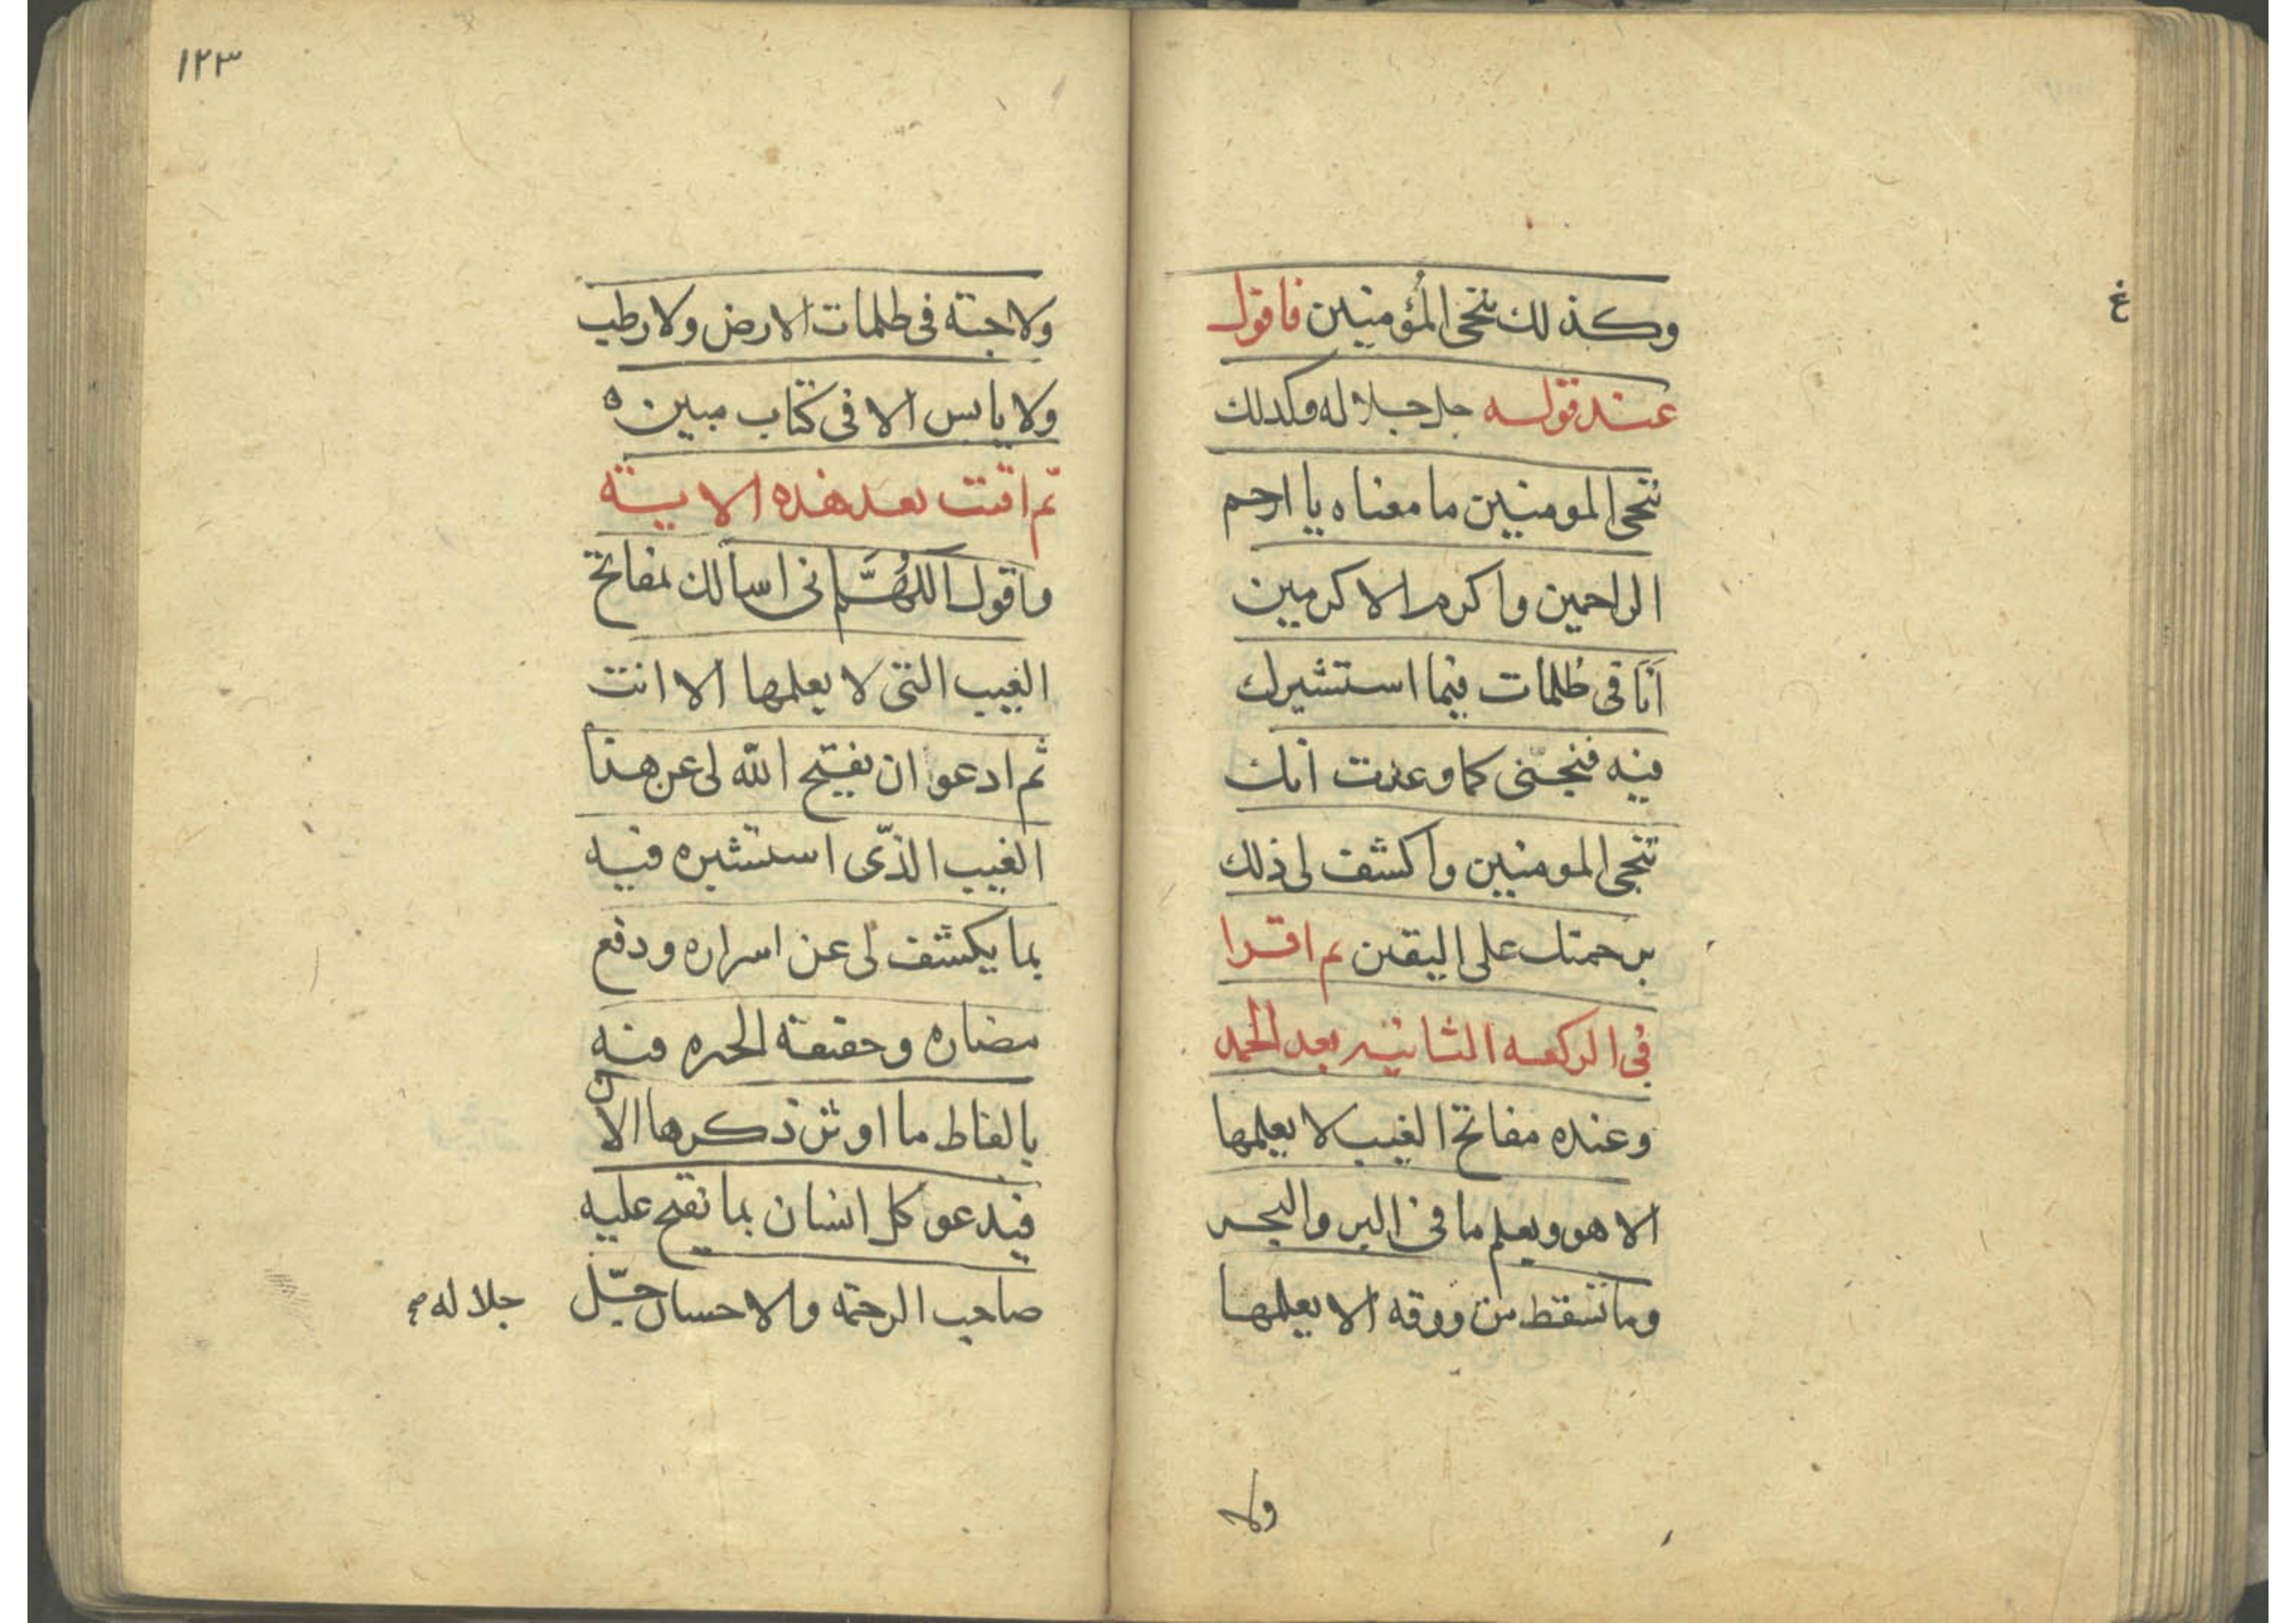 وكذلك ننجى المؤمنين فاقول
عند قوله جل جلاله وكدلك
ننجى المومنين ما معناه يا ارحم
الراحمين واكرم الاكرمين
انا فى ظلمات فيما استشيرك
فيه فنجنى كما وعدت انك
تنجى المومنين واكشف لى ذلك
برحمتك على اليقين ثم اقرا
فى الركعه الثانيه بعد الحمد
وعنده مفاتح الغيب لا يعلمها
الا هو ويعلم ما فى البر والبحر
وما تسقط من ورقه الا يعلمها
ولا
غ
١٢٣
ولا حبة فى ظلمات الارض ولا رطب
ولا يابس الا فى كتاب مبين ه
ثم اقنت بعد هذه الاية
واقول اللهم انى اسالك بمفاتح
الغيب التى لا يعلمها الا انت
ثم ادعوا ان يفتح الله لى عن هذا
الغيب الذى استشيره فيه
بما يكشف لى عن اسراره ودفع
مضاره وحقيقة الخيره فيه
بالفاظ ما اوثر ذكرها الان
فيدعو كل انسان بما يفتح عليه
صاحب الرحمة والاحسان جل جلاله